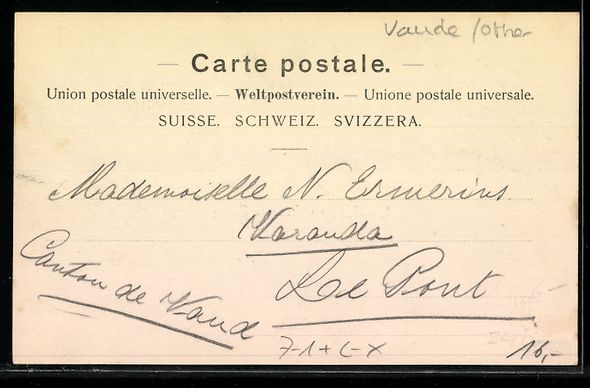 Vaude / Other
— Carte postale. —
Union postale universelle. — Weltpostverein. — Unione postale universale.
SUISSE. SCHWEIZ. SVIZZERA.
Mademoiselle N. Ermerins.
Varanda
Le Pont
Canton de Vaud
16,-